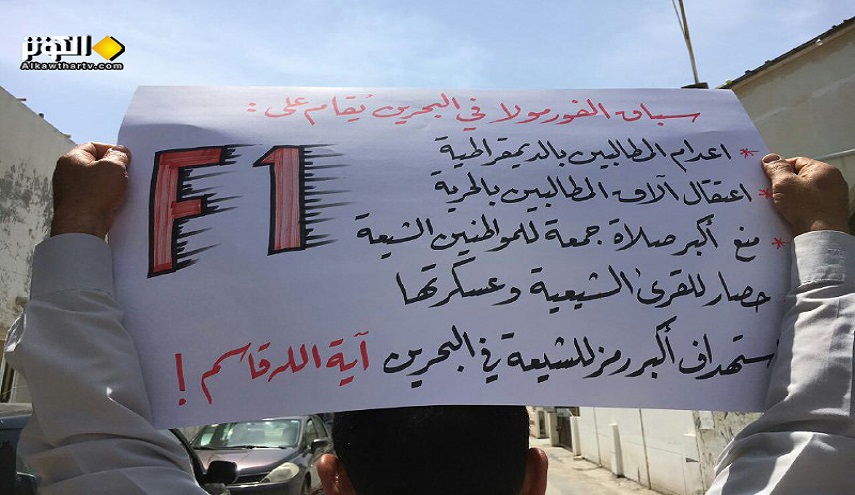 الكوثر
Alkawthartv.com
سباق الفورمولا في البحرين يُقام على :
* اعدام المطالبين بالديمقراطية
* اعتقال آلاف المطالبين بالحرية
* منع أكبر صلاة جمعة للمواطنين الشيعة
حصار للقرى الشيعية وعسكرتها
استهداف أكبر رمز للشيعة في البحرين آية الله قاسم !
F1